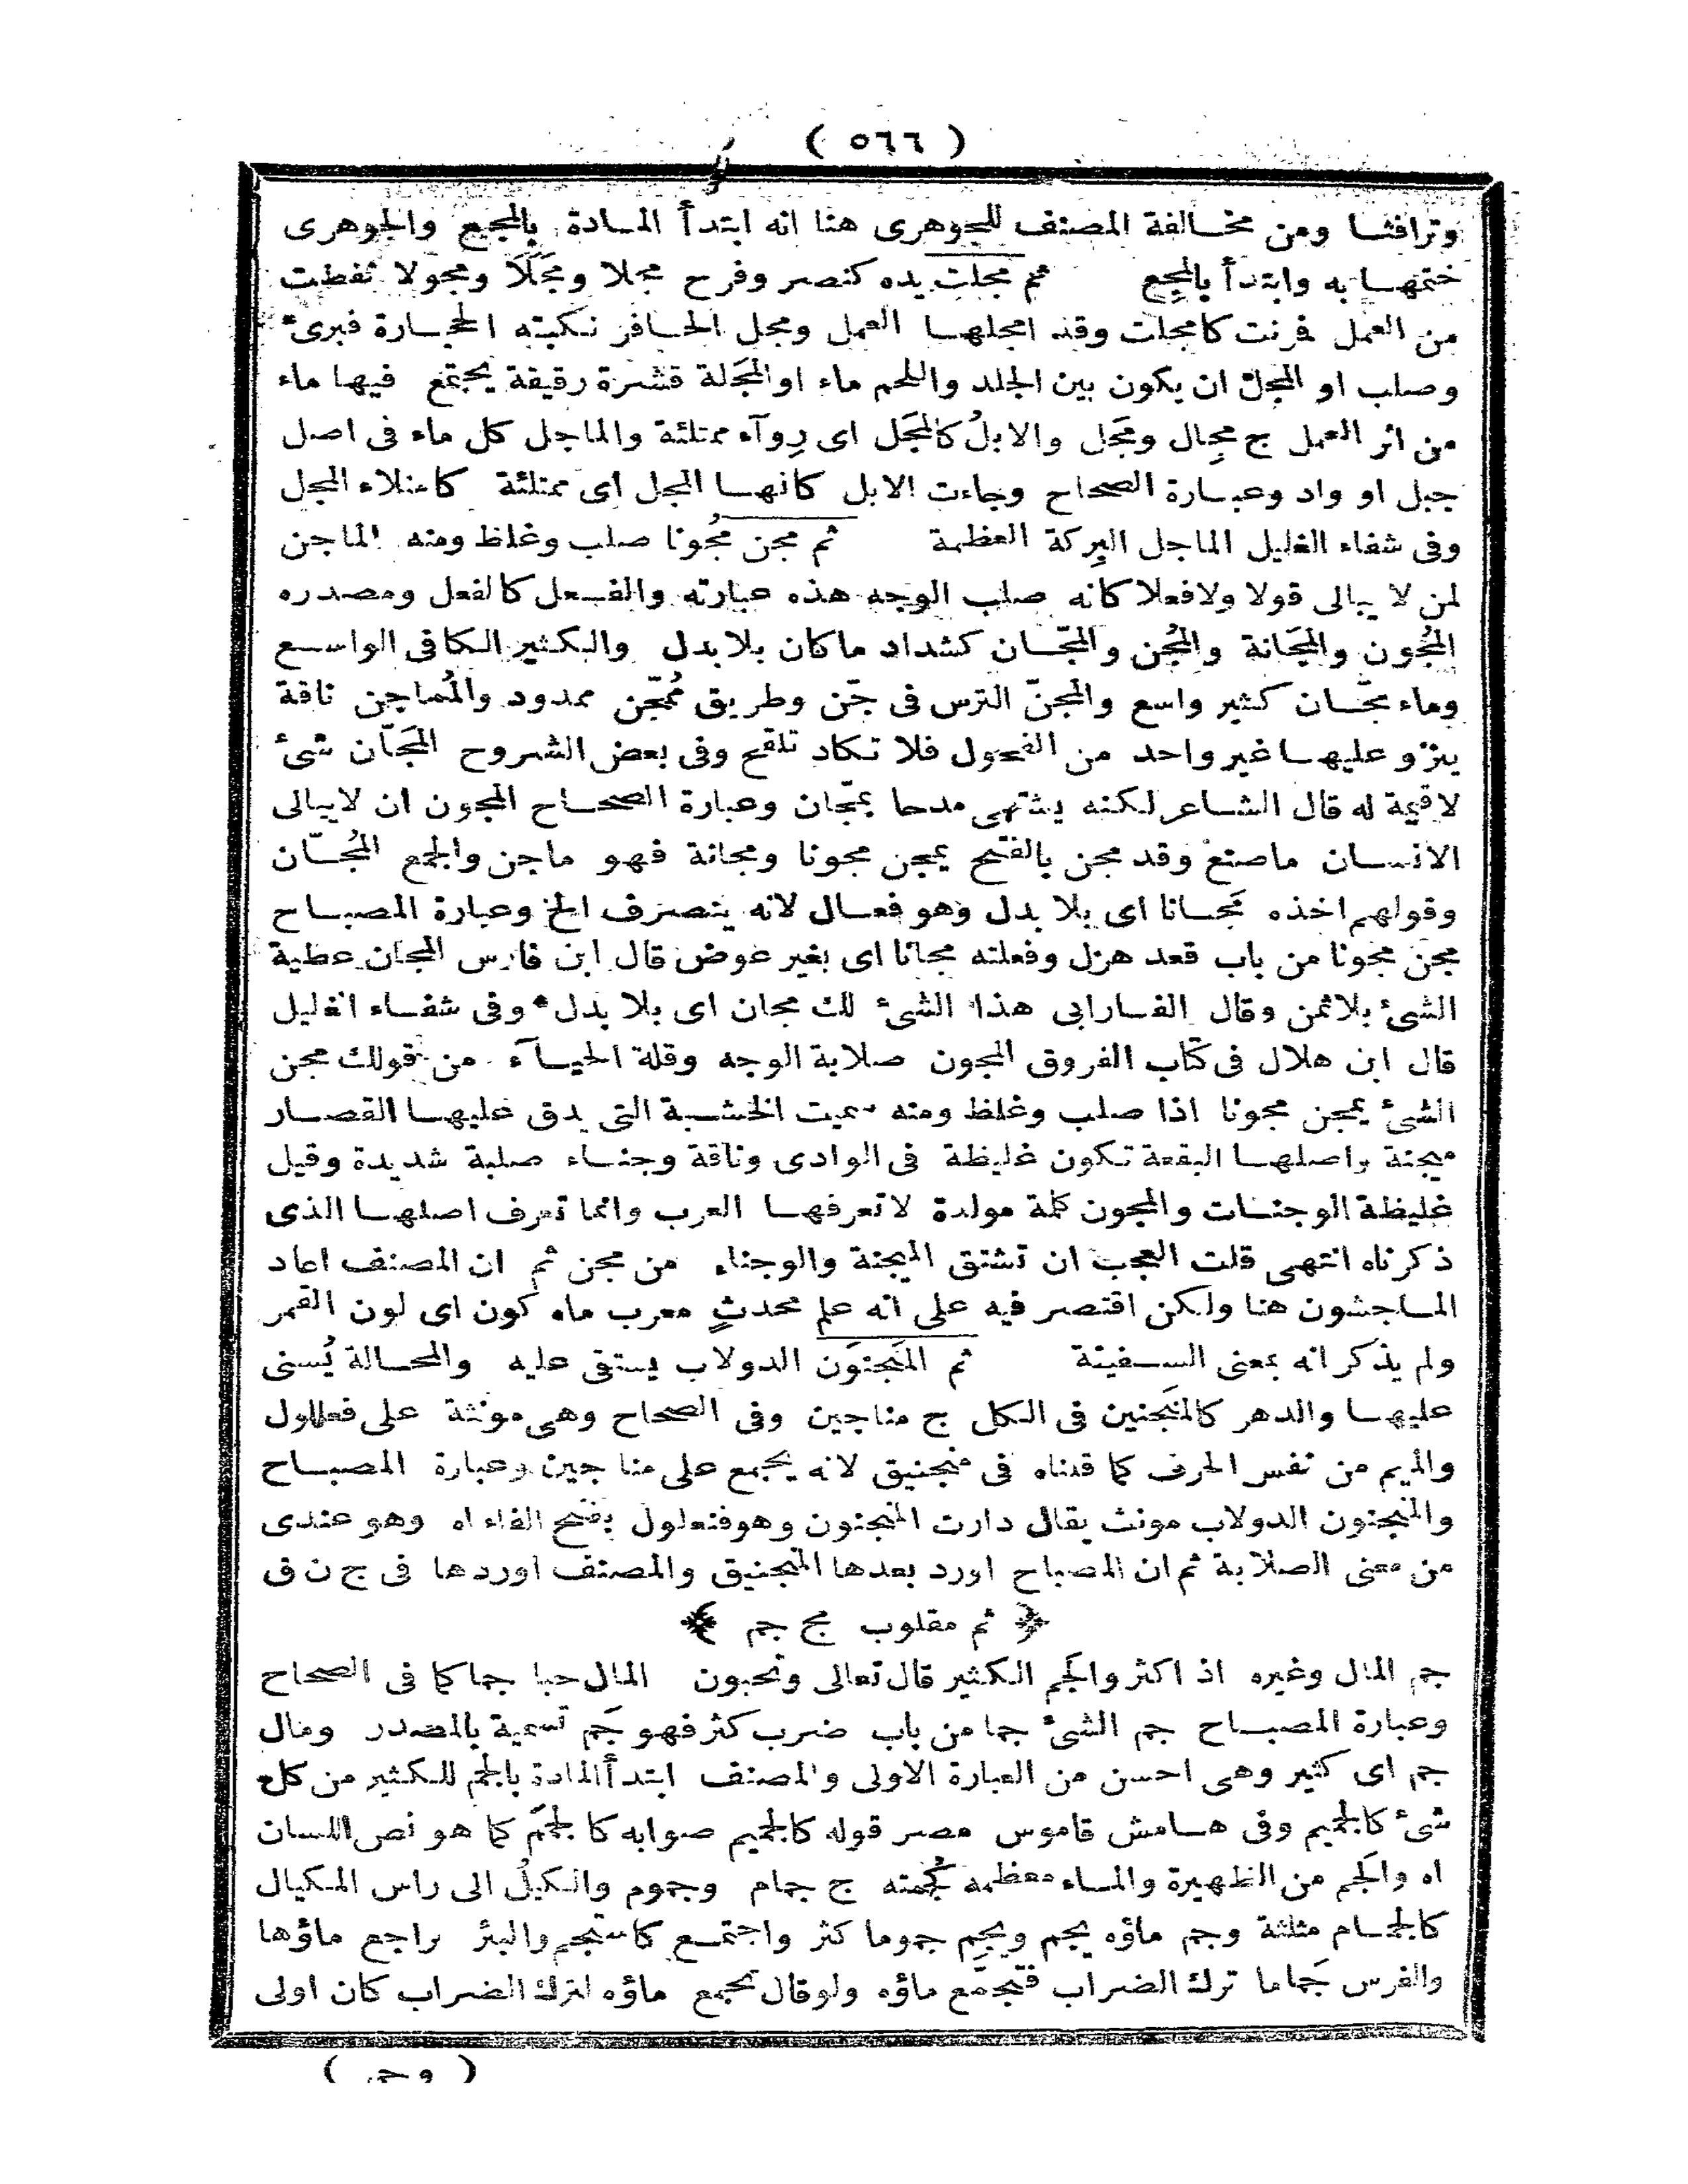 ( ٥٦٦ )
وترافثا ومن مخالفة المصنف للجوهرى هنا انه ابتدأ المادة بالمجيع والجوهرى
ختمها به وابتدأ بالمجِع ثم مجلت يده كنصر وفرح مجلا ومَجَلًا ومجولا نفطت
من العمل فرنت كامجلت وقد امجلها العمل ومجل الحافر نكبته الحجارة فبرئ
وصلب او المجل ان يكون بين الجلد واللحم ماء او المَجلة قشرة رقيقة يجتمع فيها ماء
من اثر العمل ج مِجال ومَجل والابلُ كالمَجل اى رِوآء ممتلئة والماجل كل ماء فى اصل
جبل او واد وعبارة الصحاح وجاءت الابل كانها المجل اى ممتلئة كامتلاء المجل
وفى شفاء الغليل الماجل البِركة العظيمة ثم مجن مُجونا صلب وغلظ ومنه الماجن
لمن لا يبالى قولا ولا فعلا كانه صلب الوجه هذه عبارته والفعل كالفعل ومصدره
المُجون والمَجَانة والمُجن والمَجّان كشداد ما كان بلا بدل والكثير الكافى الواسع
وماء مجّان كثير واسع والمجنّ الترس فى جنن وطريق مُمَجّن ممدود والمُماجن ناقة
ينزو عليها غير واحد من الفحول فلا تكاد تلقح وفى بعض الشروح المَجّان شئ
لا قيمة له قال الشاعر لكنه يشتهى مدحا بمجّان وعبارة الصحاح المجون ان لا يبالى
الانسان ما صنع وقد مجن بالفتح يمجن مجونا ومجانة فهو ماجن والجمع المُجّان
وقولهم اخذه مَجانا اى بلا بدل وهو فعال لانه يتصرف الخ وعبارة المصباح
مجن مجونا من باب قعد هزل وفعلته مجانا اى بغير عوض قال ابن فارس المجان عطية
الشئ بلا ثمن وقال الفارابى هذا الشئ لك مجان اى بلا بدل وفى شفاء الغليل
قال ابن هلال فى كتاب الفروق المجون صلابة الوجه وقلة الحيآء من قولك مجن
الشئ يمجن مجونا اذا صلب وغلظ ومنه سميت الخشبة التى يدق عليها القصار
ميجنة واصلها البقعة تكون غليظة فى الوادى وناقة وجناء صلبة شديدة وقيل
غليظة الوجنات والمجون كلمة مولدة لا تعرفها العرب وانما تعرف اصلها الذى
ذكرناه انتهى قلت العجب ان تشتق الميجنة والوجناء من مجن ثم ان المصنف اعاد
الماجشون هنا ولكن اقتصر فيه على انه علم محدثٍ معرب ماه كون اى لون القمر
ولم يذكر انه بمعنى السفينة ثم المَنجَنون الدولاب يستقى عليه والمحالة يُسنى
عليها والدهر كالمَنجنين فى الكل ج مناجين وفى الصحاح وهى مونثة على فعللول
والميم من نفس الحرف كما قدمناه فى منجنيق لانه يجمع على مناجين وعبارة المصباح
والمنجنون الدولاب مونث يقال دارت المنجنون وهو فنعلول بفتح الفاء اه وهو عندى
من معنى الصلابة ثم ان المصباح اورد بعدها المنجنيق والمصنف اوردها فى ج ن ق
﴿ ثم مقلوب مج جم ﴾
جم المال وغيره اذ اكثر والجَم الكثير قال تعالى وتحبون المال حبا جما كما فى الصحاح
وعبارة المصباح جم الشئ جما من باب ضرب كثر فهو جَم تسمية بالمصدر ومال
جم اى كثير وهى احسن من العبارة الاولى والمصنف ابتدأ المادة بالجم للكثير من كل
شئ كالجميم وفى هامش قاموس مصر قوله كالجميم صوابه كالجمَم كما هو نص اللسان
اه والجَم من الظهيرة والماء معظمه كجُمته ج جمام وجموم والكيلُ الى راس المكيال
كالجمام مثلثة وجم ماؤه يجم ويجِم جموما كثر واجتمع كاستجم والبئر راجع ماؤها
والفرس جَماما ترك الضراب فتجمّع ماؤه ولو قال تجمع ماؤه لترك الضراب كان اولى
( وجم )